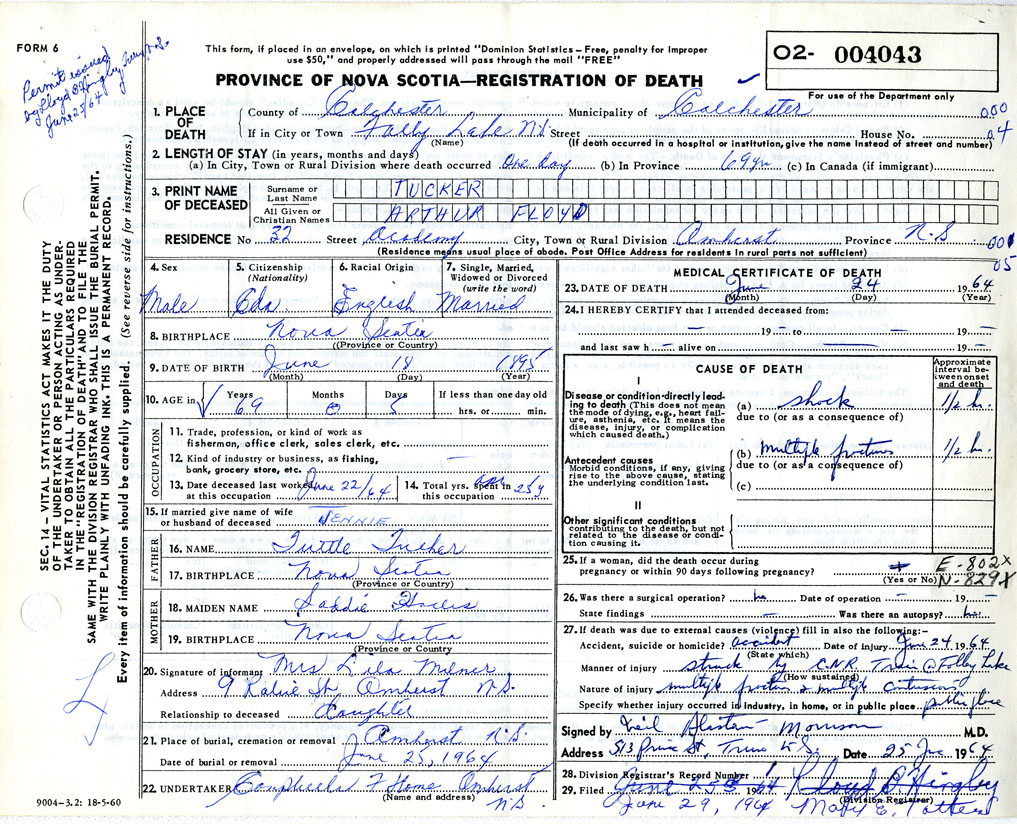 FORM 6
Permit issued
by Lloyd B Hingley Truro N.S.
June 25/64
This form, if placed in an envelope, on which is printed "Dominion Statistics – Free, penalty for improper
use $50," and properly addressed will pass through the mail "FREE"
PROVINCE OF NOVA SCOTIA—REGISTRATION OF DEATH
02- 004043
For use of the Department only
SEC. 14 – VITAL STATISTICS ACT MAKES IT THE DUTY
OF THE UNDERTAKER OR PERSON ACTING AS UNDER-
TAKER TO OBTAIN ALL THE PARTICULARS REQUIRED
IN THE "REGISTRATION OF DEATH" AND TO FILE THE
SAME WITH THE DIVISION REGISTRAR WHO SHALL ISSUE THE BURIAL PERMIT.
WRITE PLAINLY WITH UNFADING INK. THIS IS A PERMANENT RECORD.
Every item of information should be carefully supplied. (See reverse side for instructions.)
1. PLACE OF DEATH County of Colchester Municipality of Colchester 000
If in City or Town Folly Lake N.S. Street House No. 04
(Name) (If death occurred in a hospital or institution, give the name instead of street and number)
2. LENGTH OF STAY (in years, months and days)
(a) In City, Town or Rural Division where death occurred One day (b) In Province 69 yr (c) In Canada (if immigrant)
3. PRINT NAME OF DECEASED Surname or Last Name TUCKER
All Given or Christian Names ARTHUR FLOYD
RESIDENCE No 32 Street Academy City, Town or Rural Division Amherst Province N.S 001
(Residence means usual place of abode. Post Office Address for residents in rural parts not sufficient) 05
4. Sex Male
5. Citizenship (Nationality) Cda
6. Racial Origin English
7. Single, Married, Widowed or Divorced (write the word) Married
8. BIRTHPLACE Nova Scotia
(Province or Country)
9. DATE OF BIRTH June 18 1895
(Month) (Day) (Year)
10. AGE in Years 69 Months 0 Days 5 If less than one day old hrs. or min.
OCCUPATION
11. Trade, profession, or kind of work as
fisherman, office clerk, sales clerk, etc.
12. Kind of industry or business, as fishing,
bank, grocery store, etc. —
13. Date deceased last worked at this occupation June 22/64
14. Total yrs. spent in this occupation apr 25y
15. If married give name of wife
or husband of deceased JENNIE
FATHER
16. NAME Tuttle Tucker
17. BIRTHPLACE Nova Scotia
(Province or Country)
MOTHER
18. MAIDEN NAME Saddie
19. BIRTHPLACE Nova Scotia
(Province or Country)
20. Signature of informant Mrs Lila Milner
Address 9 St, Amherst N.S.
Relationship to deceased Daughter
21. Place of burial, cremation or removal Amherst N.S.
Date of burial or removal June 25, 1964
22. UNDERTAKER F Home Amherst
(Name and address) N.S.
9004-3.2: 18-5-60
MEDICAL CERTIFICATE OF DEATH
23. DATE OF DEATH June 24 1964
(Month) (Day) (Year)
24. I HEREBY CERTIFY that I attended deceased from:
— 19 – to — 19 –
and last saw h – alive on — 19 –
CAUSE OF DEATH
Approximate interval between onset and death
I
Disease or condition directly leading to death (This does not mean the mode of dying, e.g., heart failure, asthenia, etc. It means the disease, injury, or complication which caused death.)
(a) shock 1/2 hr.
due to (or as a consequence of)
Antecedent causes
Morbid conditions, if any, giving rise to the above cause, stating the underlying condition last.
(b) multiple fractures 1/2 hr.
due to (or as a consequence of)
(c)
II
Other significant conditions
contributing to the death, but not related to the disease or condition causing it.
25. If a woman, did the death occur during
pregnancy or within 90 days following pregnancy? (Yes or No)
E-802X
N-829X
26. Was there a surgical operation? no Date of operation – 19 –
State findings — Was there an autopsy? no
27. If death was due to external causes (violence) fill in also the following:–
Accident, suicide or homicide? accident Date of injury June 24 1964
(State which)
Manner of injury struck by CNR Train @ Folly Lake
(How sustained)
Nature of injury multiple fractures & multiple contusions
Specify whether injury occurred in industry, in home, or in public place public place
Signed by Alastair Morrison M.D.
Address 513 Prince St, Truro N.S. Date 25 June 1964
28. Division Registrar's Record Number 1
29. Filed June 25th 1964 Lloyd B Hingley
(Division Registrar)
June 29, 1964 Mary E. Totten